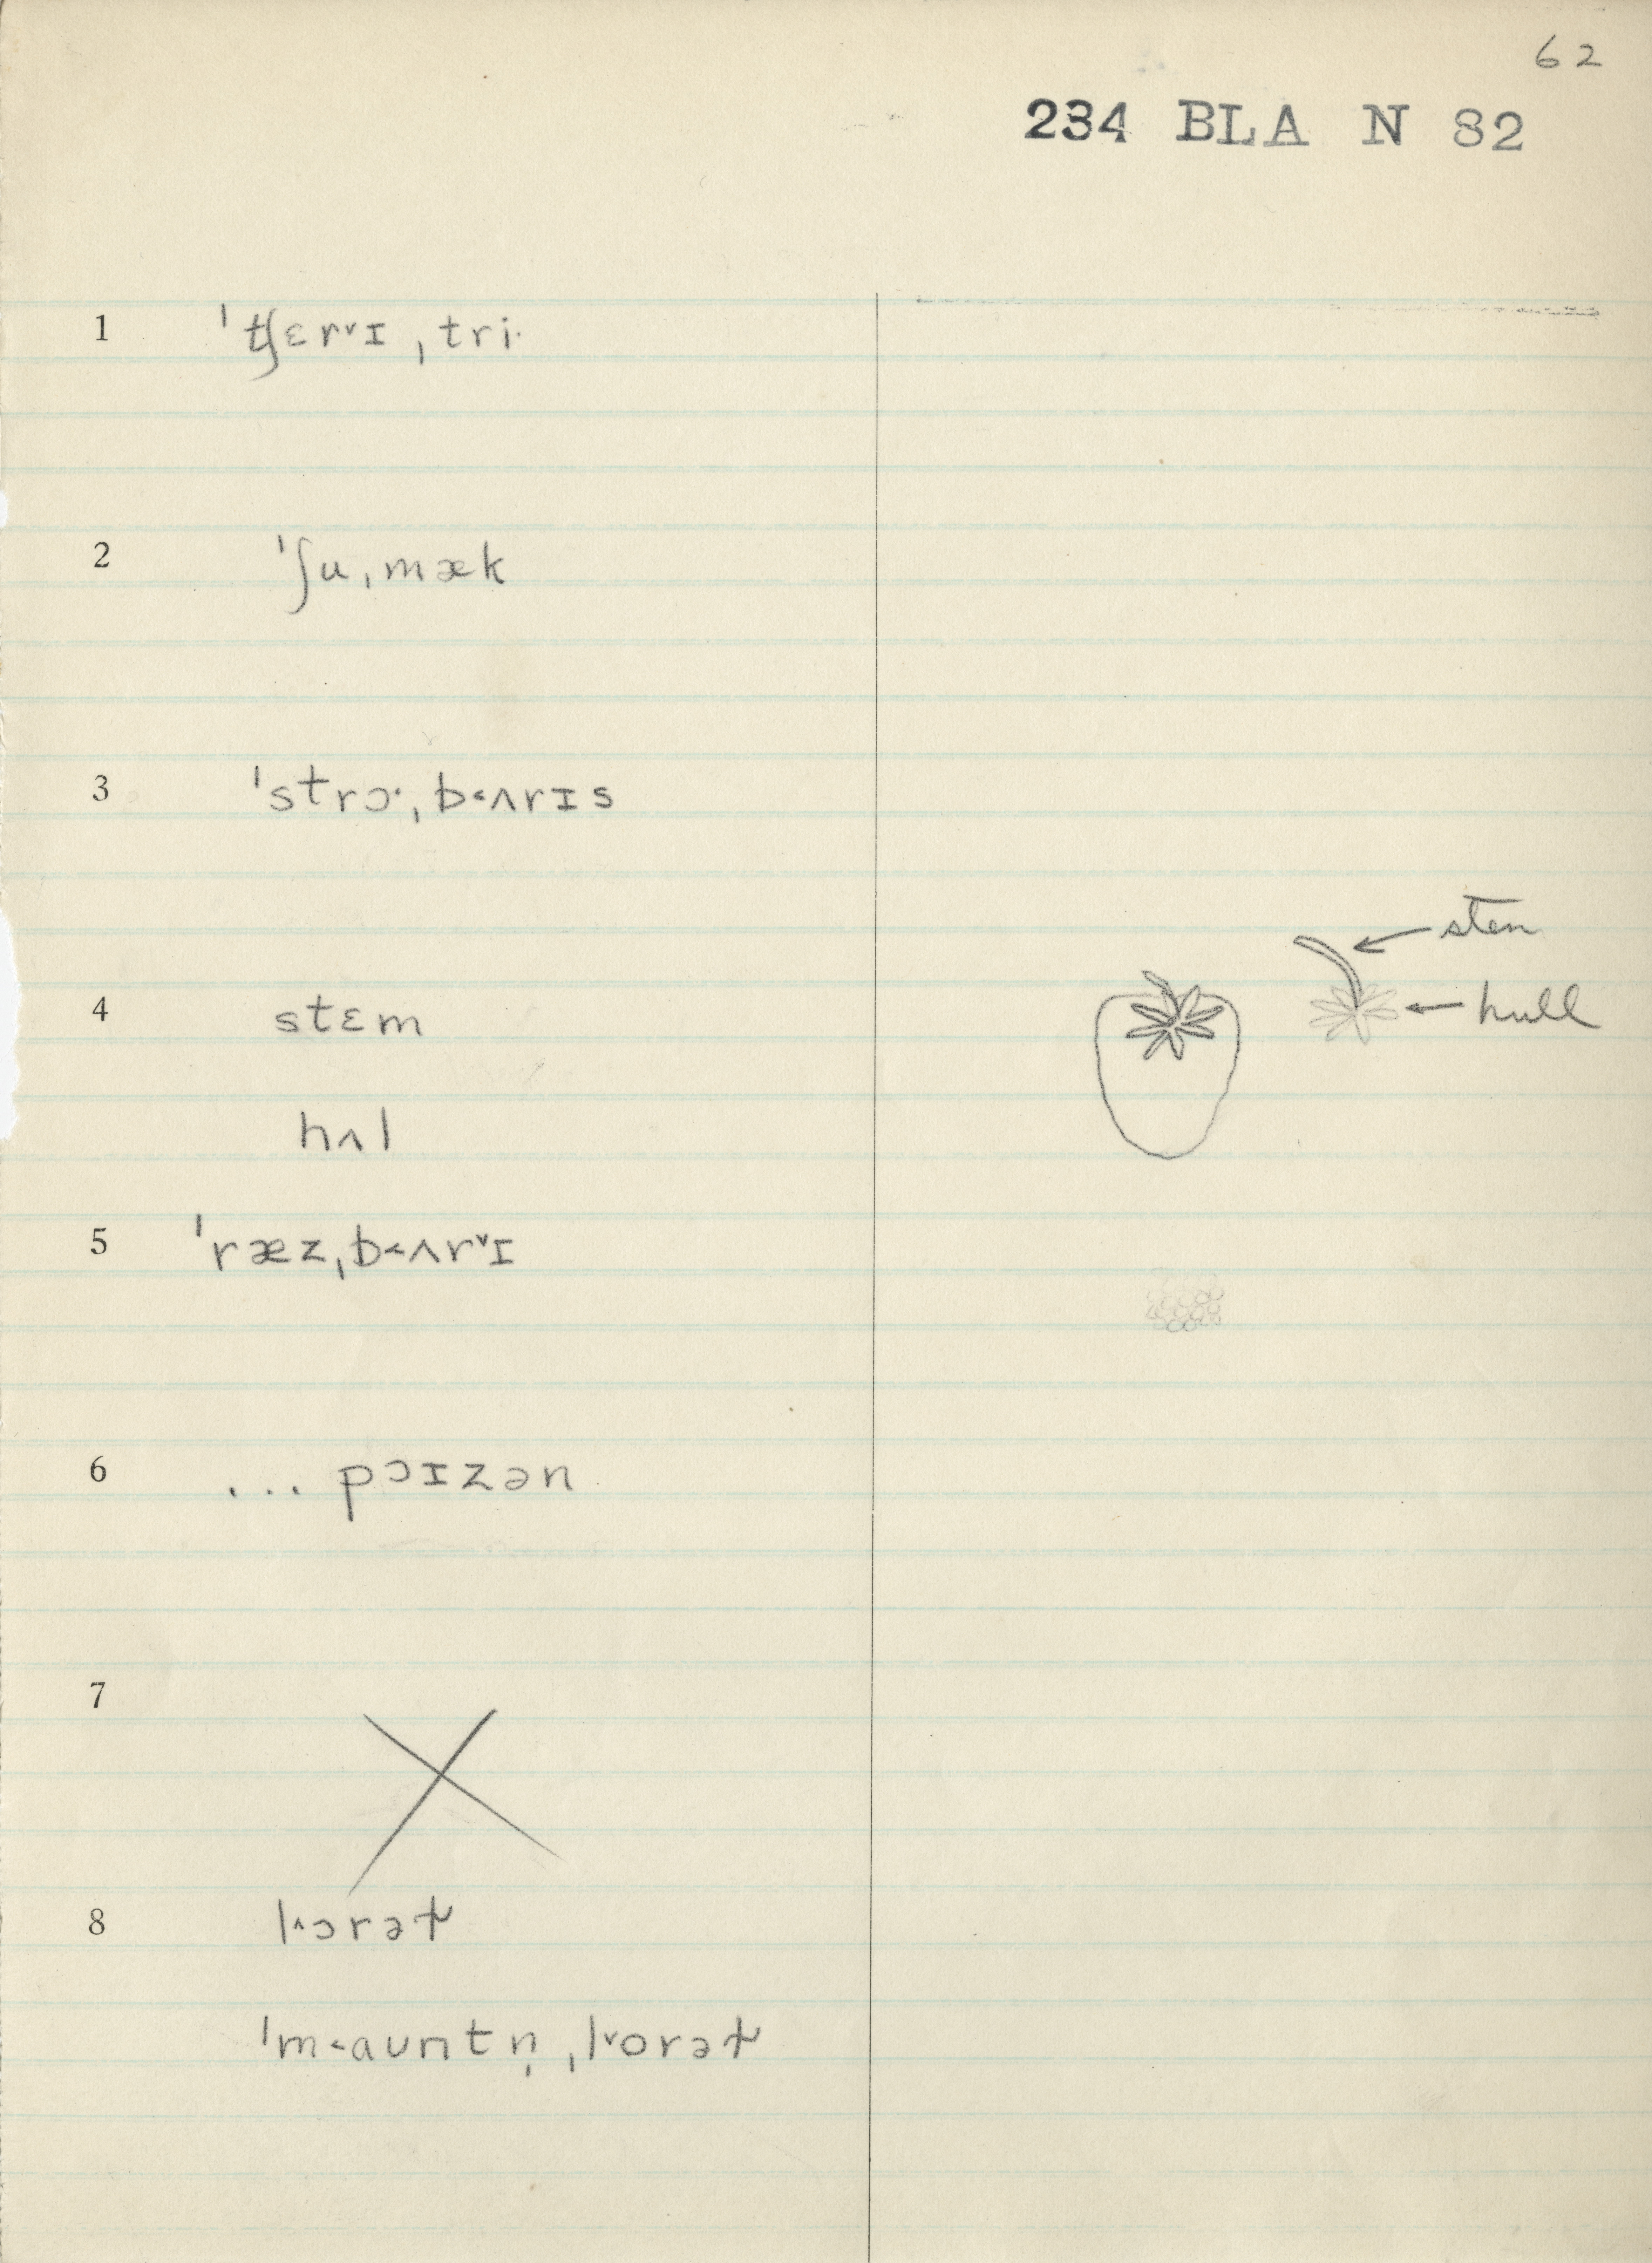 62
234 BLA N 82
1 ˈtʃɛrᵛɪ ˌtri·
2 ˈʃuˌmæk
3 ˈstrɔ·ˌb˂ʌrɪs
sten
4 stɛm
hull
hʌl
5 ˈræzˌb˂ʌrᵛɪ
6 ... pɔɪzən
7
8 l^ɔrəɫ
ˈm˂auntn̩ ˌlᵛorəɫ